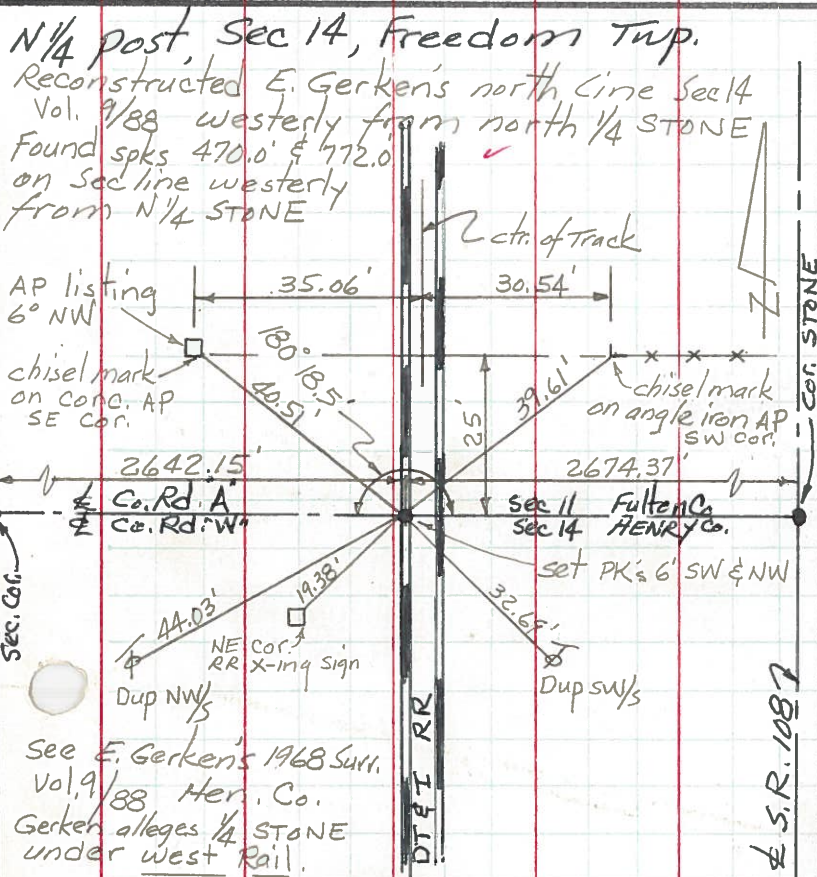 N 1/4 post, Sec 14, Freedom Twp.
Reconstructed E. Gerken's north Line Sec 14
Vol. 9/88 westerly from north 1/4 STONE
Found spks 470.0' & 772.0'
on Sec line westerly
from N 1/4 STONE
ctr. of Track
35.06'
30.54'
AP listing
6° NW
chisel mark
on conc. AP
SE Cor.
180° 18.5'
40.51'
25'
39.61'
chisel mark
on angle iron AP
SW cor.
Cor. STONE
2642.15'
2674.37'
℄ Co. Rd. "A"
℄ Co. Rd. "W"
Sec 11 Fulton Co
Sec 14 HENRY Co.
set PK's 6' SW & NW
Sec. Cor.
44.03'
19.38'
32.69'
NE cor.
RR X-ing sign
Dup NW/s
Dup SW/s
DT&I RR
See E. Gerken's 1968 Surr.
Vol, 9/88 Hen. Co.
Gerken alleges 1/4 STONE
under west Rail.
℄ S.R. 108